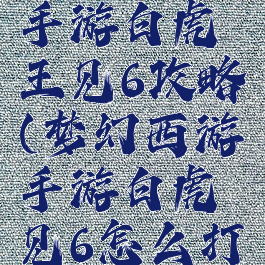 手游白虎
王见6攻略
(梦幻西游
手游白虎
见6怎么打